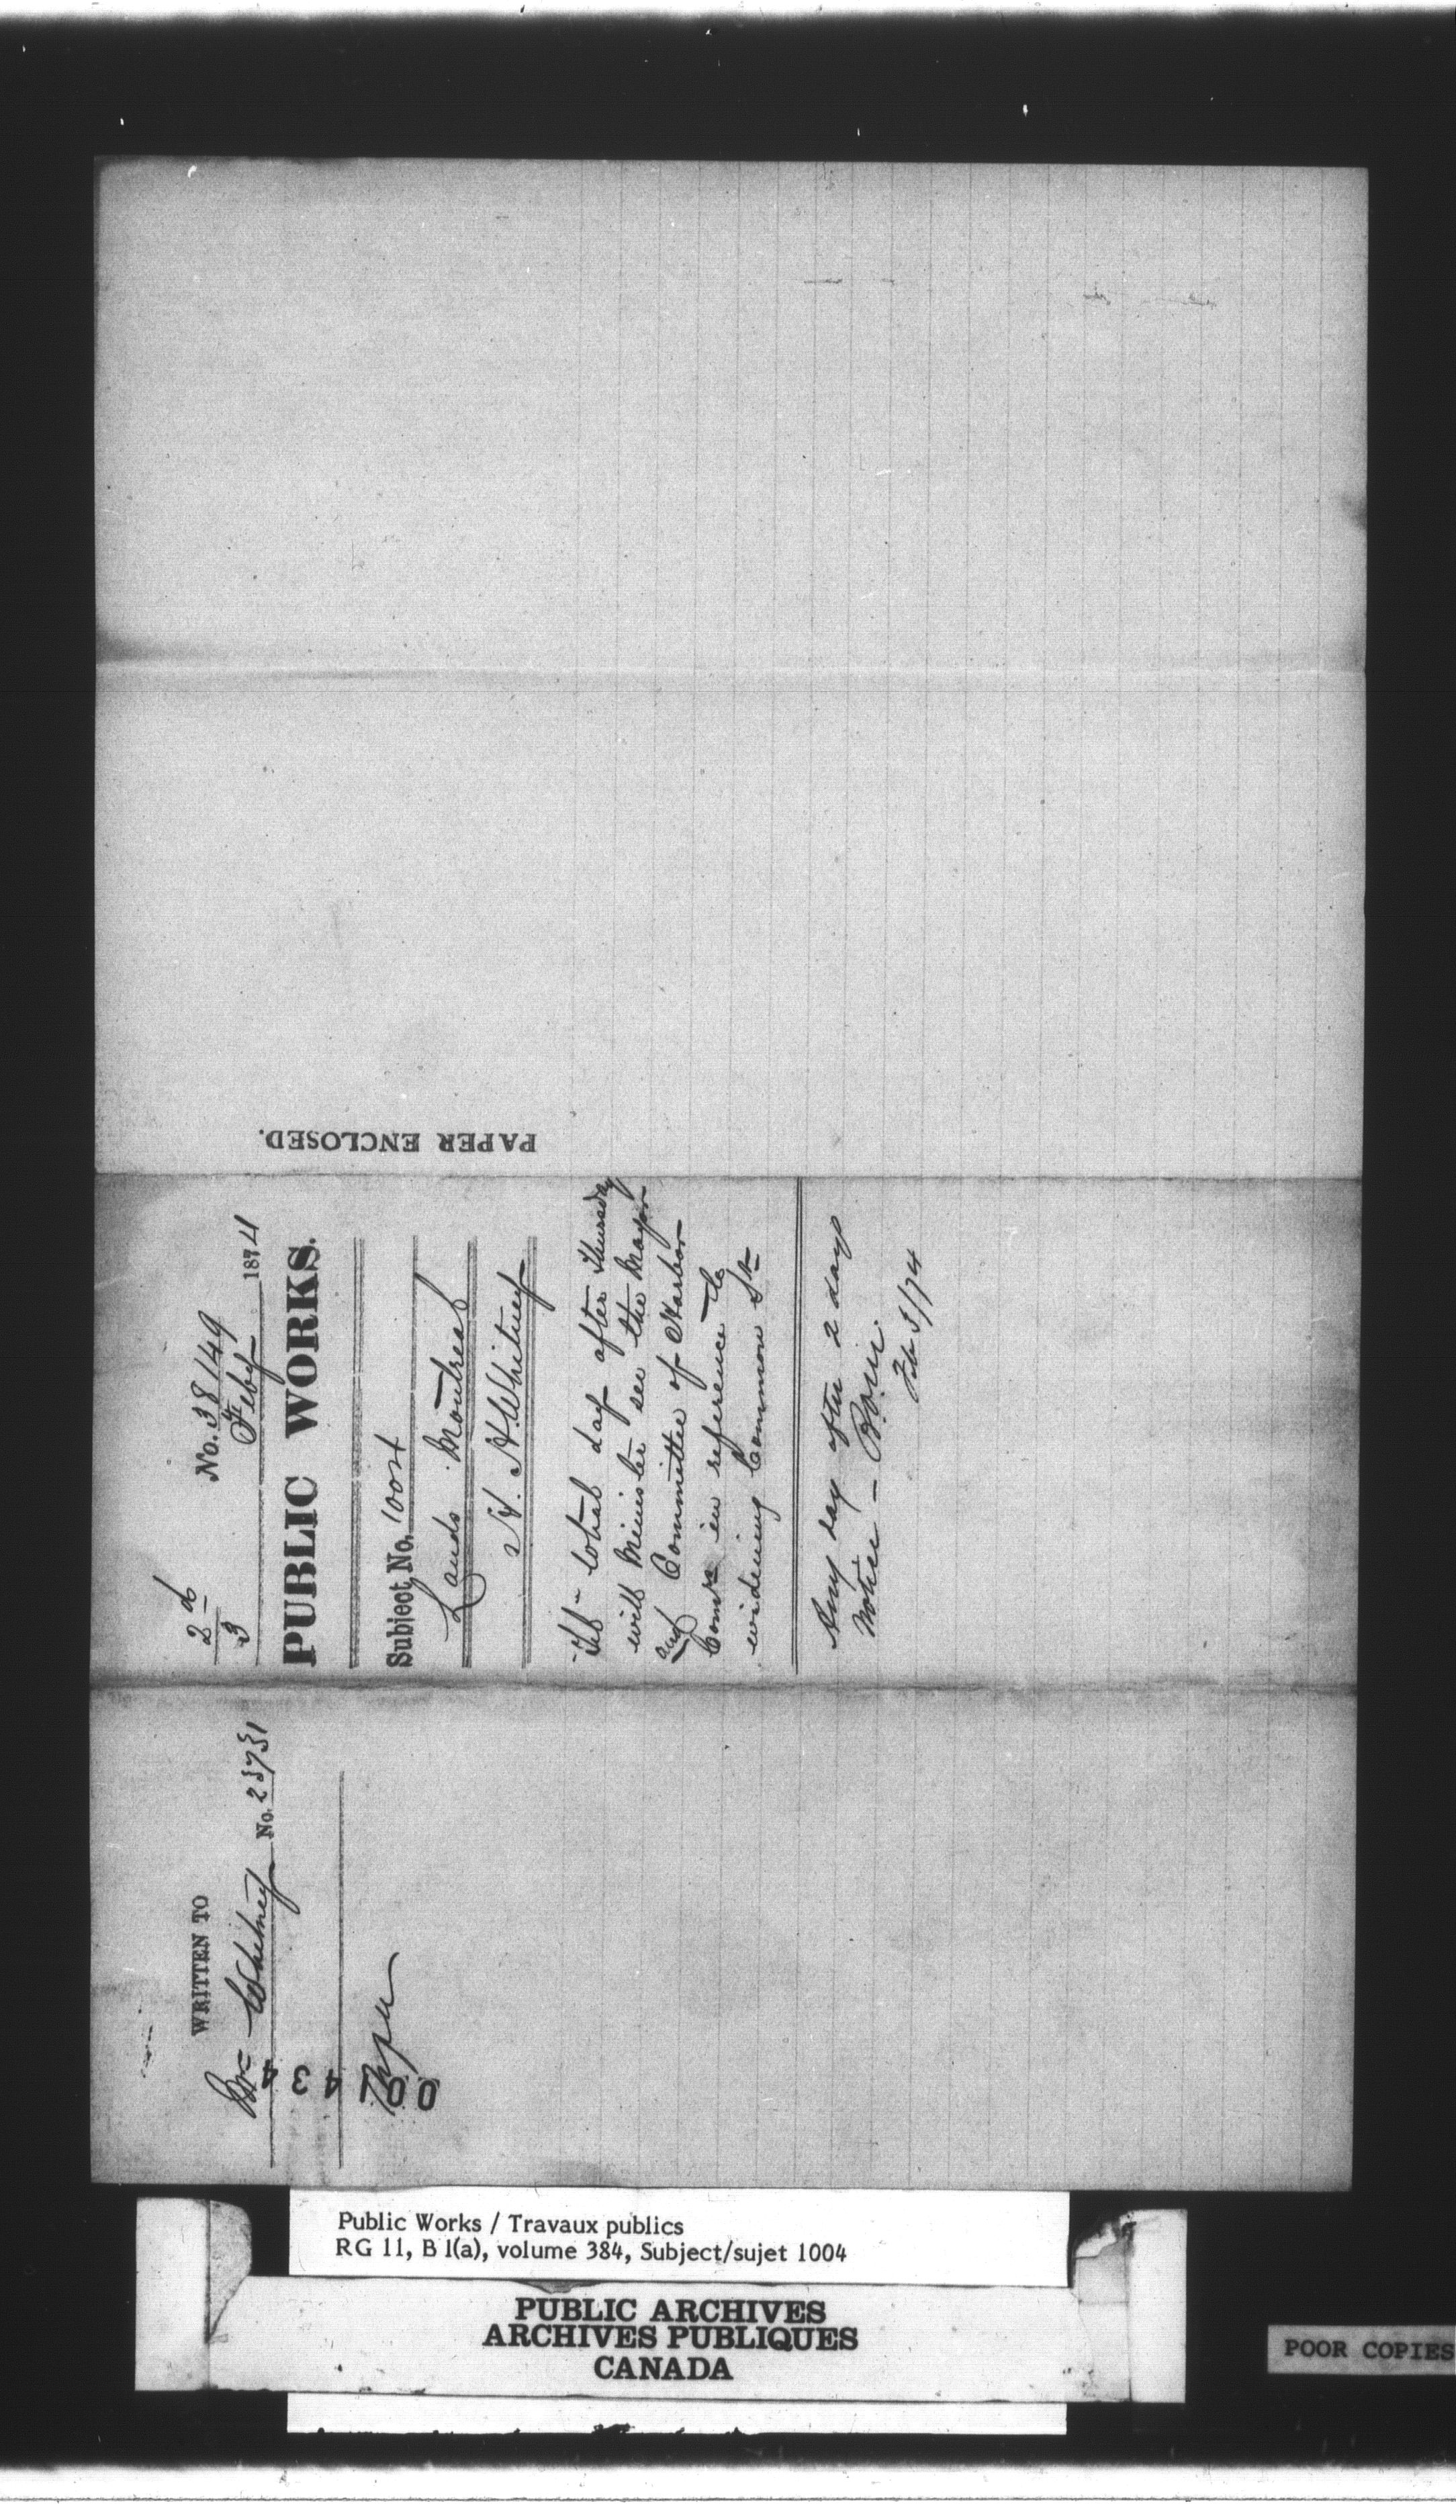 PAPER ENCLOSED.
2d
3
No. 38149
Feby 1874
PUBLIC WORKS.
Subject No. 1004
Lands Montreal
H. H. Whitney
If - what day after Thursday
will Minister see the Mayor
and Committee of Harbor
Comrs in reference to
widening Common St
Any day after 2 days
Notice -
Feb 3/74
WRITTEN TO
Mr Whitney No. 23731
001434
Public Works / Travaux publics
RG 11, B 1(a), volume 384, Subject/sujet 1004
PUBLIC ARCHIVES
ARCHIVES PUBLIQUES
CANADA
POOR COPIES